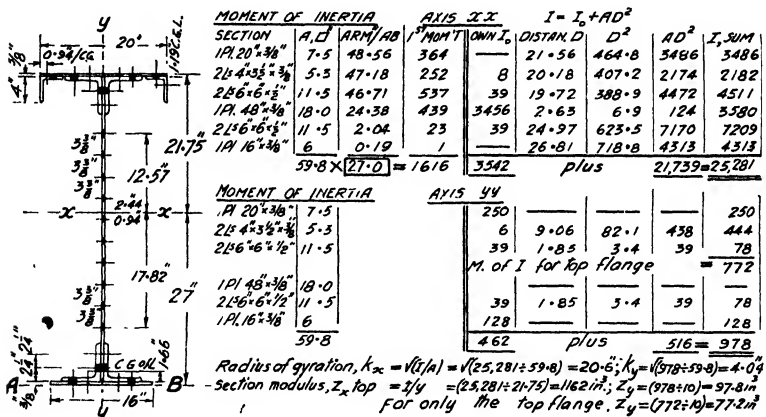 MOMENT OF INERTIA AXIS XX I = I₀ + AD²
SECTION A,□" ARM"/AB 1ST MOM'T OWN I₀ DISTAN. D D² AD² I, SUM
1Pl. 20"×3/8" 7·5 48·56 364 — 21·56 464·8 3486 3486
2Ls 4"×3½"×3/8" 5·3 47·18 252 8 20·18 407·2 2174 2182
2Ls 6×6×½" 11·5 46·71 537 39 19·72 388·9 4472 4511
1Pl. 48"×3/8" 18·0 24·38 439 3456 2·63 6·9 124 3580
2Ls 6"×6"×½" 11·5 2·04 23 39 24·97 623·5 7170 7209
1Pl 16"×3/8" 6 0·19 1 — 26·81 718·8 4313 4313
59·8 × 27·0 = 1616 3542 plus 21,739 = 25,281
MOMENT OF INERTIA AXIS YY
1Pl 20"×3/8" 7·5 250 — — — 250
2Ls 4"×3½"×3/8" 5·3 6 9·06 82·1 438 444
2Ls 6"×6"×½" 11·5 39 1·85 3·4 39 78
M. of I for top flange = 772
1Pl 48"×3/8" 18·0 — — — —
2Ls 6"×6"×½" 11·5 39 1·85 3·4 39 78
1Pl. 16"×3/8" 6 128 — — — 128
59·8 462 plus 516 = 978
Radius of gyration, kx = √(I/A) = √(25,281÷59·8) = 20·6"; ky = √(978÷59·8) = 4·04"
Section modulus, Zx top = I/y = (25,281÷21·75) = 1162 in³; Zy = (978÷10) = 97·8 in³
For only the top flange, Zy = (772÷10) = 77·2 in³
y
20"
3/8"
0·94"/CG
4"
21·75"
12·57"
x x
2·44"
0·94"
17·82"
27"
C G of L
1·66"
A B
3/8"
16"
y